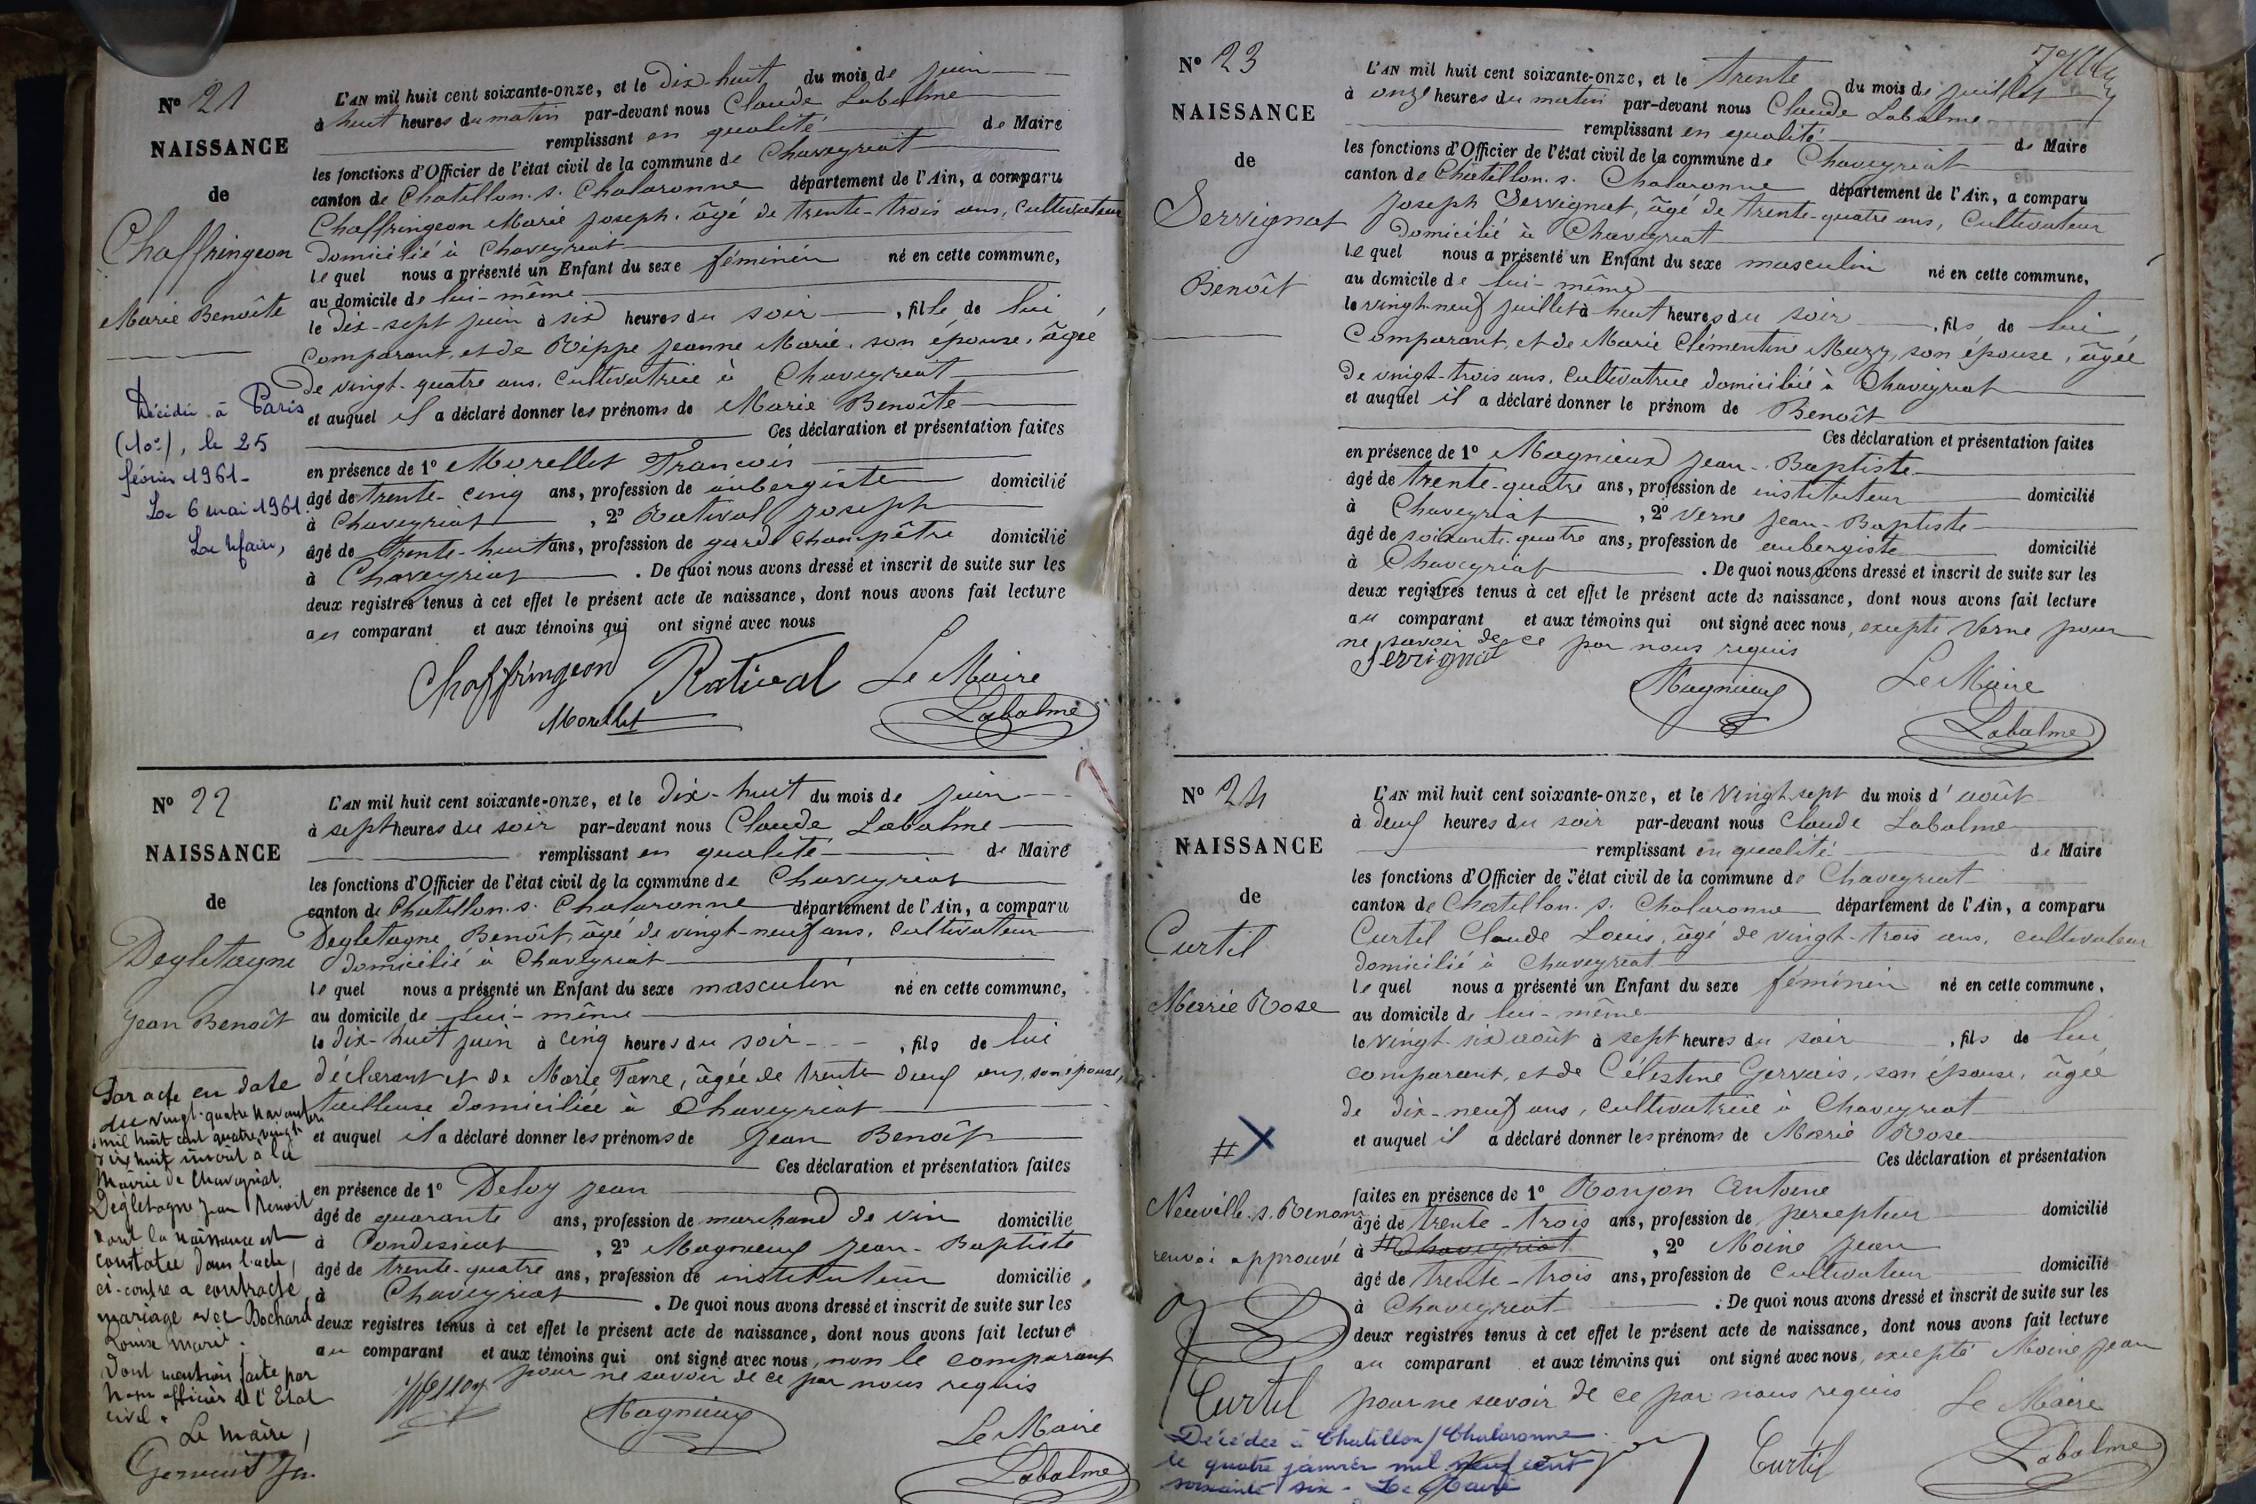 N° 21
NAISSANCE
de
Chaffringeon
Marie Benoîte
Décédée à Paris
(10e), le 25
février 1961-
Le 6 mai 1961
Le Maire,
L'AN mil huit cent soixante-onze, et le dix-huit du mois de juin
à huit heures du matin par-devant nous Claude Labalme
remplissant en qualité de Maire
les fonctions d'Officier de l'état civil de la commune de Chaveyriat
canton de Chatillon. s. Chalaronne département de l'Ain, a comparu
Chaffringeon Marie Joseph. âgé de trente-trois ans, cultivateur
domicilié à Chaveyriat
lequel nous a présenté un Enfant du sexe féminin né en cette commune,
au domicile de lui-même
le dix-sept juin à six heures du soir, fille de lui
comparant, et de Rippe Jeanne Marie, son épouse, âgée
de vingt-quatre ans, cultivatrice à Chaveyriat
et auquel il a déclaré donner les prénoms de Marie Benoîte
Ces déclaration et présentation faites
en présence de 1° Morellet Francois
âgé de trente-cinq ans, profession de aubergiste domicilié
à Chaveyriat, 2° Rativat Joseph
âgé de trente-huit ans, profession de garde champêtre domicilié
à Chaveyriat. De quoi nous avons dressé et inscrit de suite sur les
deux registres tenus à cet effet le présent acte de naissance, dont nous avons fait lecture
au comparant et aux témoins qui ont signé avec nous
Chaffringeon Rativat Le Maire
Morellet Labalme
N° 22
NAISSANCE
de
Degletagne
Jean Benoît
Par acte en date
du vingt-quatre novembre
mil huit cent quatre vingt
dix huit inscrit à la
Mairie de Chaveyriat,
Degletagne Jean Benoit
dont la naissance est
constatée dans l'acte,
ci-contre a contracté
mariage avec Bochard
Louise Marie.
Dont mention faite par
Nous officier de l'Etat
civil.
Le Maire,
L'AN mil huit cent soixante-onze, et le dix-huit du mois de juin
à sept heures du soir par-devant nous Claude Labalme
remplissant en qualité de Maire
les fonctions d'Officier de l'état civil de la commune de Chaveyriat
canton de Chatillon. s. Chalaronne département de l'Ain, a comparu
Degletagne Benoît, âgé de vingt-neuf ans, cultivateur
domicilié à Chaveyriat
lequel nous a présenté un Enfant du sexe masculin né en cette commune,
au domicile de lui-même
le dix-huit juin à cinq heures du soir, fils de lui
déclarant et de Marie Favre, âgée de trente deux ans, son épouse,
tailleuse domiciliée à Chaveyriat
et auquel il a déclaré donner les prénoms de Jean Benoît
Ces déclaration et présentation faites
en présence de 1° Deloy Jean
âgé de quarante ans, profession de marchand de vin domicilié
à Condessiat, 2° Magnieux Jean-Baptiste
âgé de trente-quatre ans, profession de instituteur domicilié
à Chaveyriat. De quoi nous avons dressé et inscrit de suite sur les
deux registres tenus à cet effet le présent acte de naissance, dont nous avons fait lecture
au comparant et aux témoins qui ont signé avec nous, non le comparant
pour ne savoir de ce par nous requis
Magnieux Le Maire
Labalme
N° 23
NAISSANCE
de
Servignat
Benoît
L'AN mil huit cent soixante-onze, et le trente du mois de juillet
à onze heures du matin par-devant nous Claude Labalme
remplissant en qualité de Maire
les fonctions d'Officier de l'état civil de la commune de Chaveyriat
canton de Chatillon. s. Chalaronne département de l'Ain, a comparu
Joseph Servignat, âgé de trente-quatre ans, cultivateur
domicilié à Chaveyriat
lequel nous a présenté un Enfant du sexe masculin né en cette commune,
au domicile de lui-même
le vingt-neuf juillet à huit heures du soir, fils de lui
comparant, et de Marie Clémentine Muzy, son épouse, âgée
de vingt-trois ans, cultivatrice domiciliée à Chaveyriat
et auquel il a déclaré donner le prénom de Benoît
Ces déclaration et présentation faites
en présence de 1° Magnieux Jean-Baptiste
âgé de trente-quatre ans, profession de instituteur domicilié
à Chaveyriat, 2° Verne Jean-Baptiste
âgé de soixante-quatre ans, profession de aubergiste domicilié
à Chaveyriat. De quoi nous avons dressé et inscrit de suite sur les
deux registres tenus à cet effet le présent acte de naissance, dont nous avons fait lecture
au comparant et aux témoins qui ont signé avec nous, excepté Verne pour
ne savoir de ce par nous requis
Servignat Magnieux Le Maire
Labalme
N° 24
NAISSANCE
de
Curtil
Marie Rose
#X
Neuville. s. Renom
renvoi approuvé
L'AN mil huit cent soixante-onze, et le vingt-sept du mois d'août
à deux heures du soir par-devant nous Claude Labalme
remplissant en qualité de Maire
les fonctions d'Officier de l'état civil de la commune de Chaveyriat
canton de Chatillon. s. Chalaronne département de l'Ain, a comparu
Curtil Claude Louis, âgé de vingt-trois ans, cultivateur
domicilié à Chaveyriat
lequel nous a présenté un Enfant du sexe féminin né en cette commune,
au domicile de lui-même
le vingt-six août à sept heures du soir, fils de lui,
comparant, et de Célestine Gervais, son épouse, âgée
de dix-neuf ans, cultivatrice à Chaveyriat
et auquel il a déclaré donner les prénoms de Marie Rose
Ces déclaration et présentation
faites en présence de 1° Ronjon Antoine
âgé de trente-trois ans, profession de percepteur domicilié
à # Chaveyriat, 2° Moine Jean
âgé de trente-trois ans, profession de cultivateur domicilié
à Chaveyriat. De quoi nous avons dressé et inscrit de suite sur les
deux registres tenus à cet effet le présent acte de naissance, dont nous avons fait lecture
au comparant et aux témoins qui ont signé avec nous, excepté Moine Jean
Curtil pour ne savoir de ce par nous requis Le Maire
Curtil Labalme
Décédée à Chatillon/Chalaronne
le quatre janvier mil neuf cent
soixante six - Le Maire